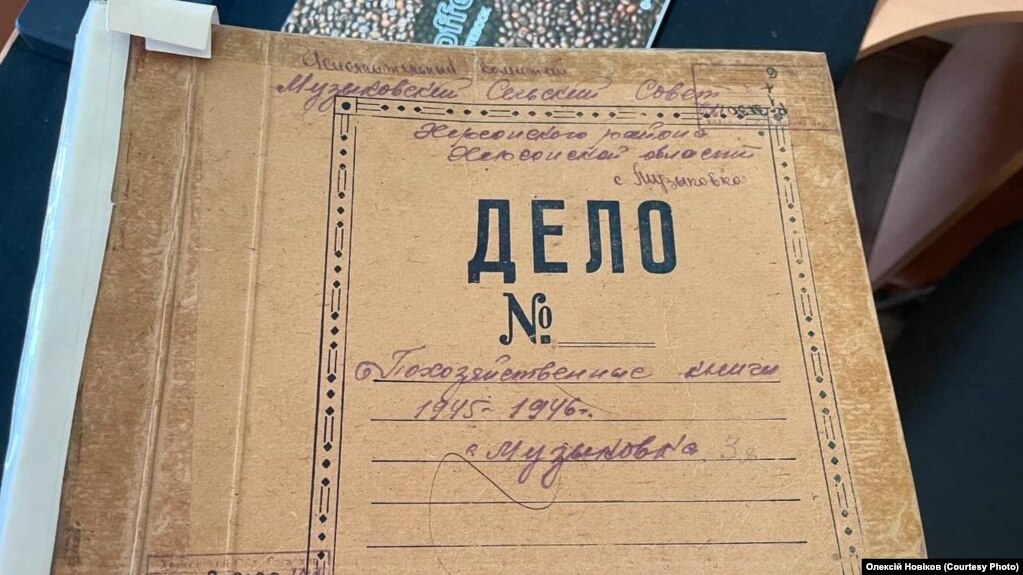 Offee
NOTEBOOK
Исполнительный комитет
Музыковский Сельский Совет
Херсонского района
Херсонской области
с Музыковка
ДЕЛО
№
Похозяйственные книги
1945- 1946г.
с Музыковка
Олексій Новіков (Courtesy Photo)